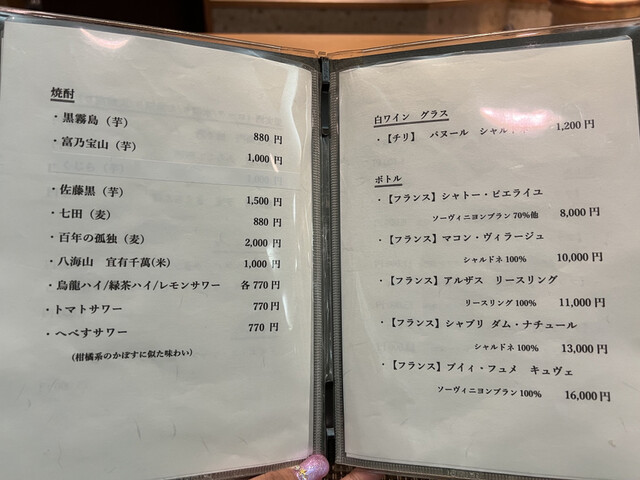 焼酎
・黒霧島（芋） 880 円
・富乃宝山（芋） 1,000 円
・佐藤黒（芋） 1,500 円
・七田（麦） 880 円
・百年の孤独（麦） 2,000 円
・八海山 宜有千萬(米) 1,000 円
・烏龍ハイ/緑茶ハイ/レモンサワー 各 770 円
・トマトサワー 770 円
・へべすサワー 770 円
（柑橘系のかぼすに似た味わい）
白ワイン グラス
・【チリ】 パヌール 1,200 円
ボトル
・【フランス】シャトー・ピエライユ
ソーヴィニヨンブラン 70%他 8,000 円
・【フランス】マコン・ヴィラージュ
シャルドネ 100% 10,000 円
・【フランス】アルザス リースリング
リースリング 100% 11,000 円
・【フランス】シャブリ ダム・ナチュール
シャルドネ 100% 13,000 円
・【フランス】プイィ・フュメ キュヴェ
ソーヴィニヨンブラン 100% 16,000 円